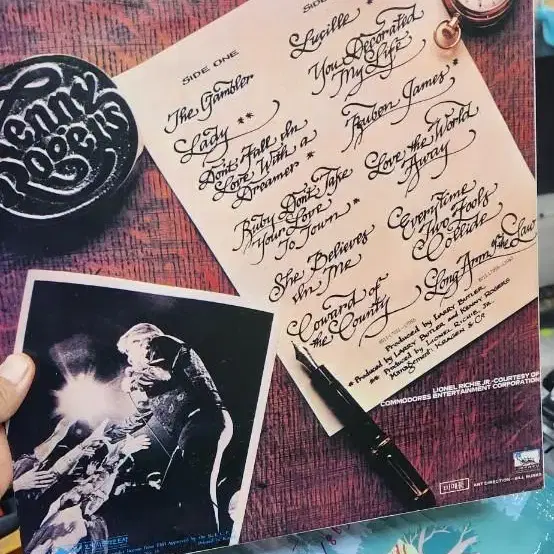 Kenny
Rogers
SIDE ONE
The Gambler
Lady **
Don't Fall In
Love With a
Dreamer *
Ruby Don't Take
Your Love
To Town *
She Believes
In Me
Coward of
the County
SIDE
Lucille *
You Decorated
My Life
Ruben James *
Love the World
Away
Every Time
Two Fools
Collide
Long Arm of the Law
Produced by LARRY BUTLER
* Produced by LARRY BUTLER and KENNY ROGERS
** Produced by LIONEL RICHIE JR.
Management: KRAGEN & CO
LIONEL RICHIE JR.-COURTESY OF
COMMODORES ENTERTAINMENT CORPORATION
비매품
ART DIRECTION - BILL BURKS